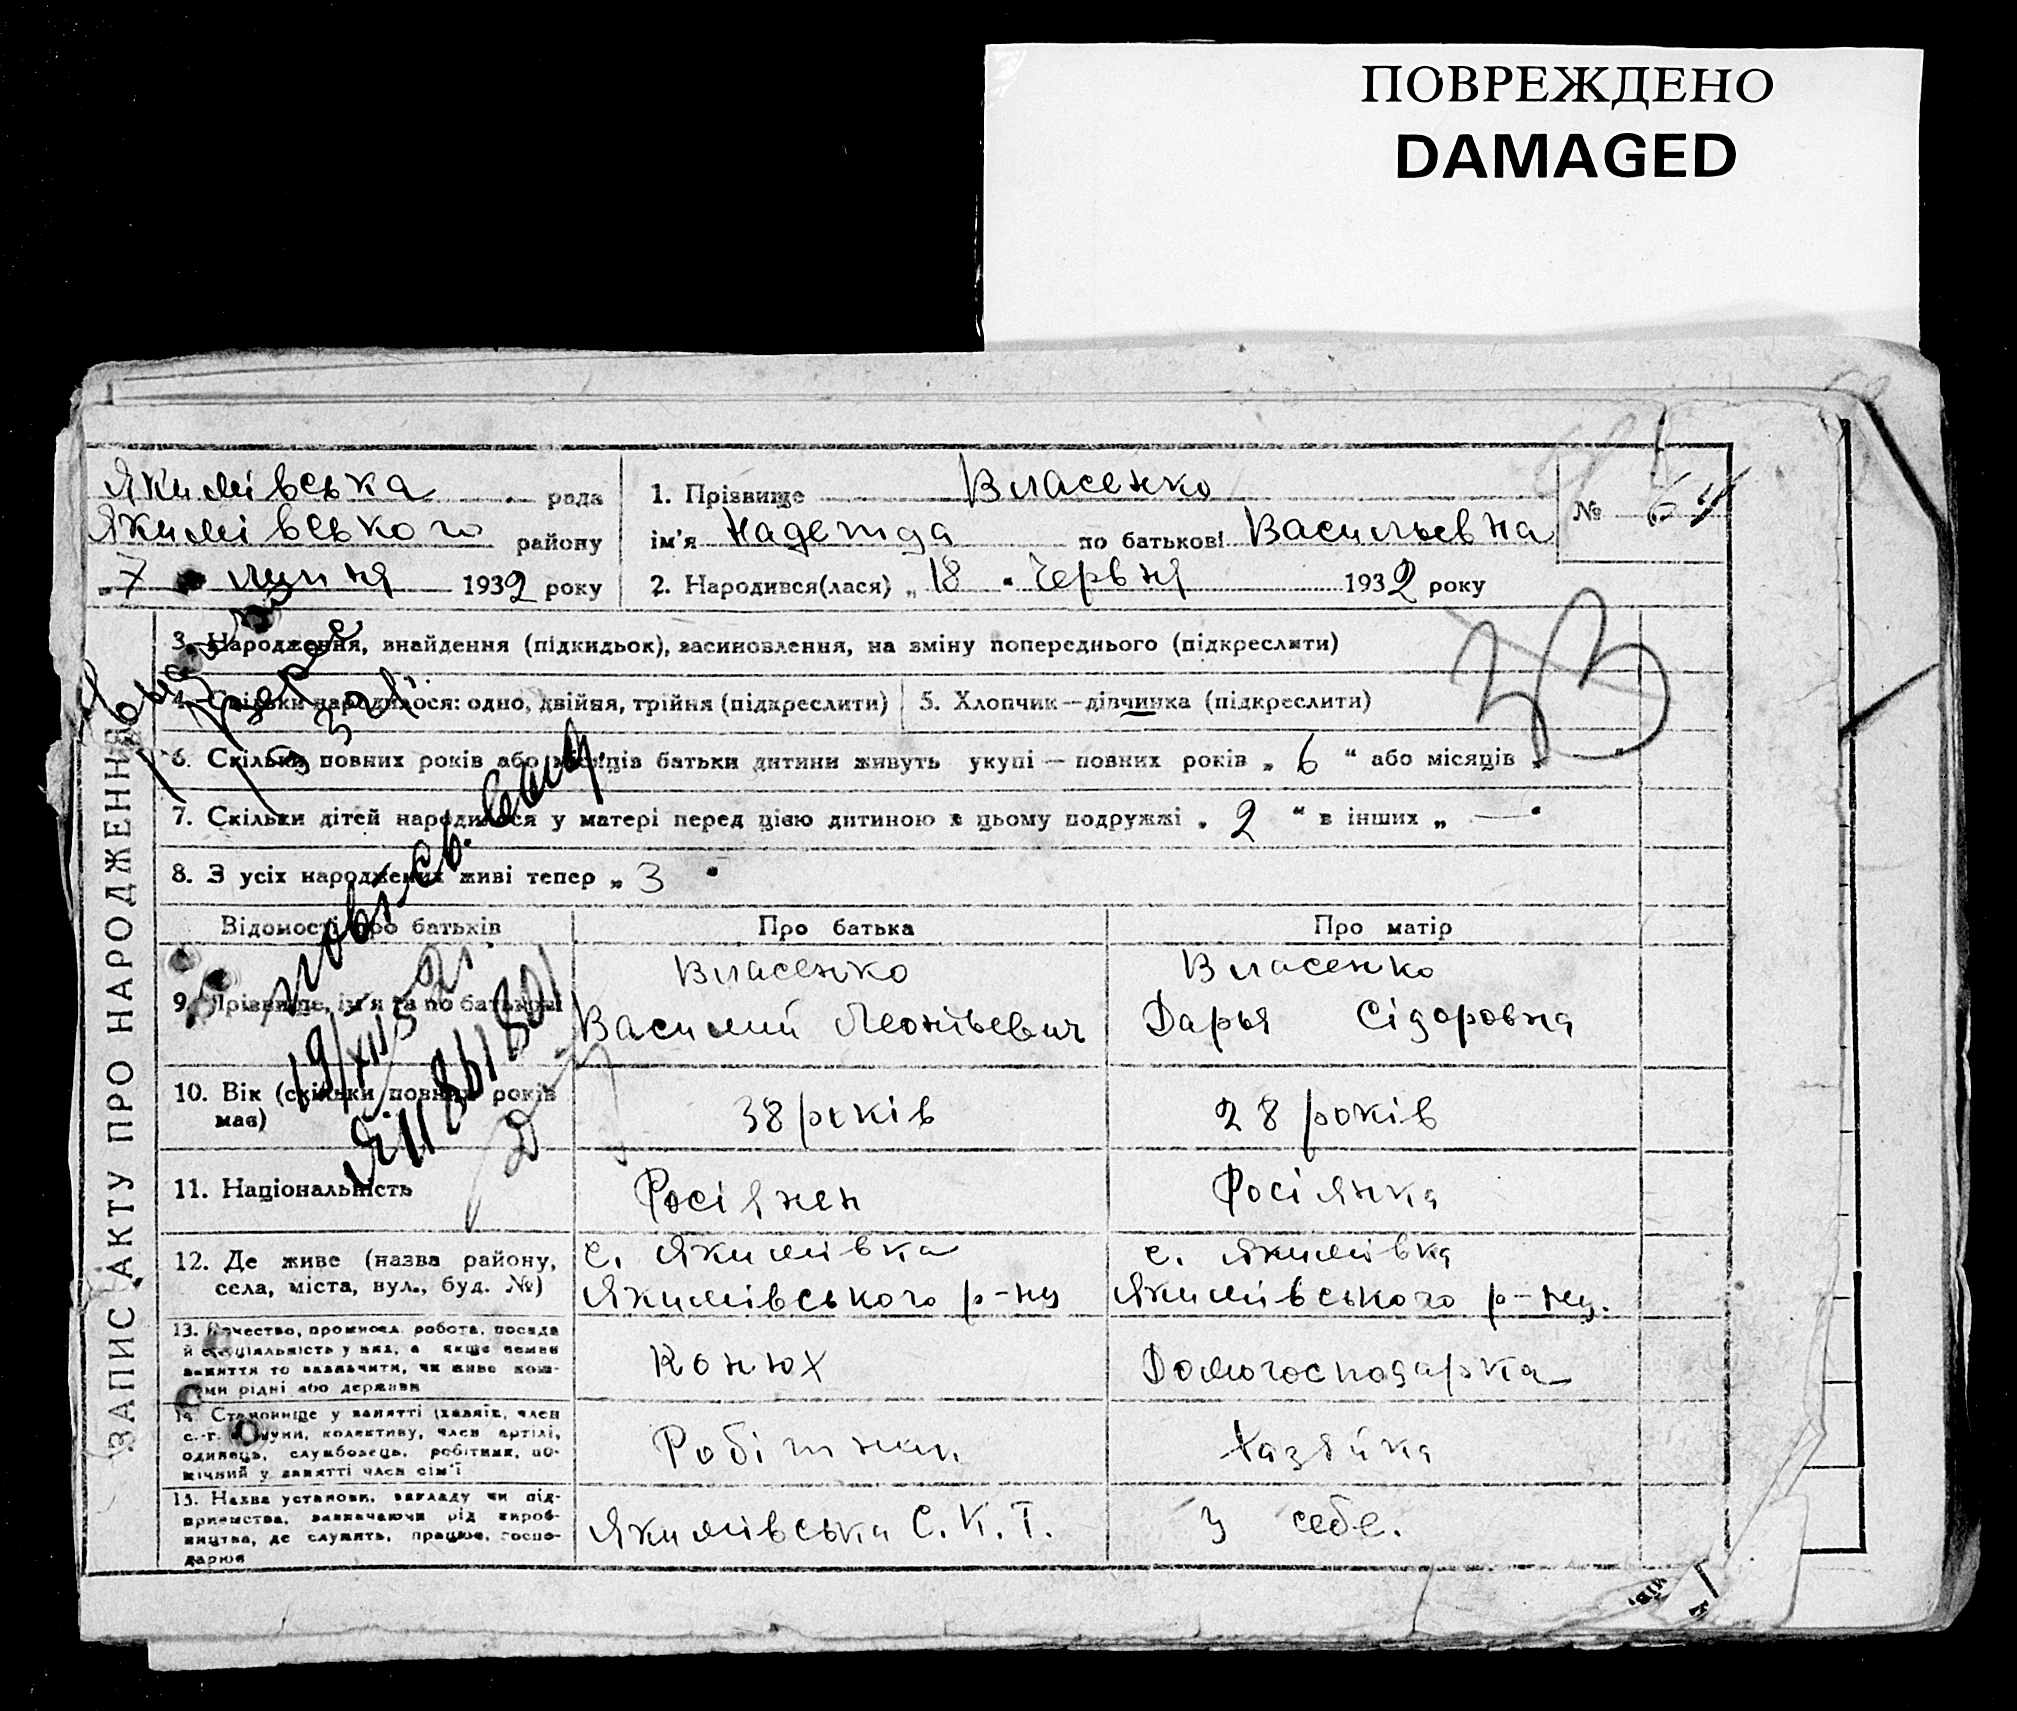 ПОВРЕЖДЕНО
DAMAGED
Якимівська рада
Якимівського району
„7" липня 1932 року
1. Прізвище Власенко
ім'я Надежда по батькові Васильевна
№ 64
2. Народився(лася) „18" Червня 1932 року
ЗАПИС АКТУ ПРО НАРОДЖЕННЯ
3. Народження, внайдення (підкидьок), засиновлення, на зміну попереднього (підкреслити)
4. Скільки народилося: одно, двійня, трійня (підкреслити)
5. Хлопчик—дівчинка (підкреслити)
6. Скільки повних років або місяців батьки дитини живуть укупі — повних років „6" або місяців „—"
7. Скільки дітей народилося у матері перед цією дитиною в цьому подружжі „2" в інших „—"
8. З усіх народжених живі тепер „3"
Відомості про батьків
Про батька
Про матір
9. Прізвище, ім'я та по батькові
Власенко
Василий Леонтьевич
Власенко
Дарья Сідоровна
10. Вік (скільки повних років має)
38 років
28 років
11. Національність
Росіянен
Росіянка
12. Де живе (назва району,
села, міста, вул., буд. №)
с. Якимівка
Якимівського р-ну
с. Якимівка
Якимівського р-ну.
13. робота, посада
й спеціальність у них, а якщо немає
заняття то зазначити, чи живе кош-
рідні або держави
Конюх
Домогосподарка
14. Становище у занятті (хазяїн, член
с.-г. колективу, член артілі,
одинець, службовець, робітник, по-
мічний у занятті член сім'ї
Робітник
Хазяйка
15. Назва установи, закладу чи під-
приємства, зазначаючи рід вироб-
ництва, де служить, працює, госпо-
дарює
Якимівська С.К.Т.
У себе.